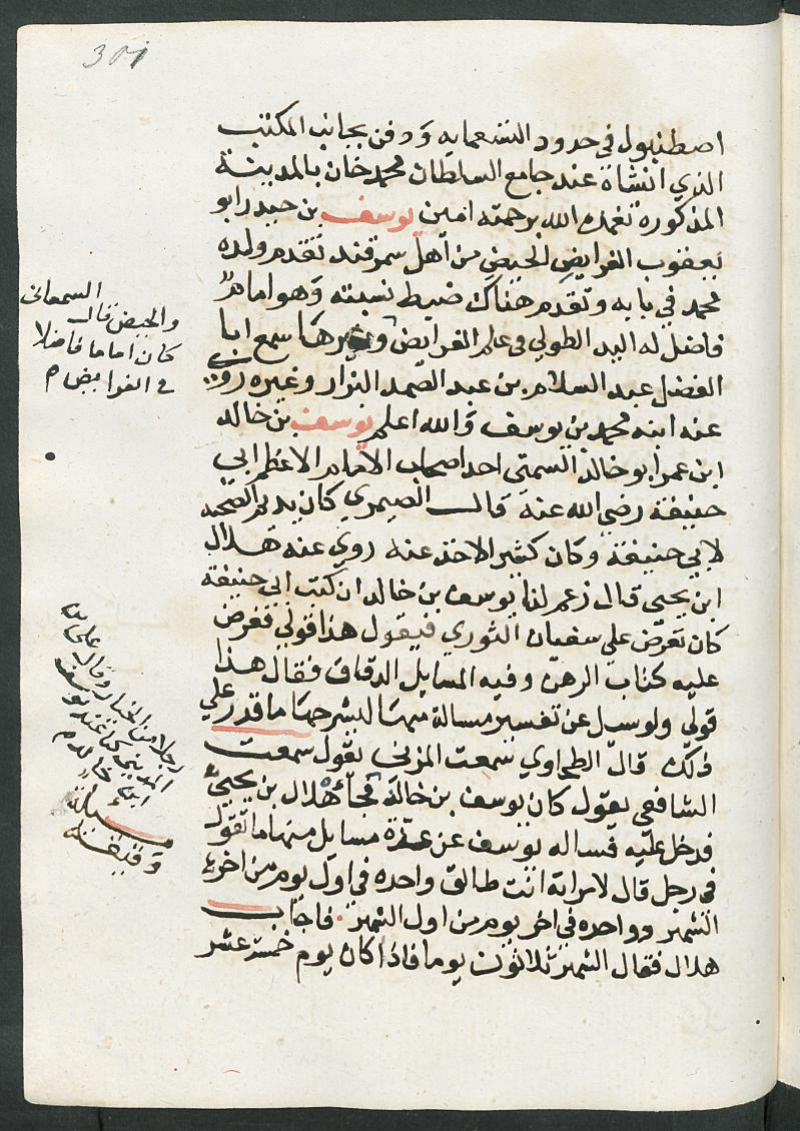 301
اصطنبول في حدود التسعمايه ودفن بجانب المكتب
الذي انشاة عند جامع السلطان محمد خان بالمدينة
المذكورة تغمده الله برحمته امين يوسف بن حيدر ابو
يعقوب الفرايضي الحيضي من اهل سمرقند تقدم ولده
محمد في بابه وتقدم هناك ضبط نسبته وهو امام
فاضل له اليد الطولي في علم الفرايض وغيرها سمع ابا
الفضل عبد السلام بن عبد الصمد البزار وغيره روي
عنه ابنه محمد بن يوسف والله اعلم يوسف بن خالد
ابن عمر ابو خالد السمتي احد اصحاب الامام الاعظم ابي
حنيفة رضي الله عنه قال الصيمري كان يديم الصحبه
لابي حنيفة وكان كثير الاخذ عنه روي عنه هلال
ابن يحيي قال زعم لنا يوسف بن خالد ان كتب ابي حنيفة
كان تعرض علي سفيان الثوري فيقول هذا قولي فعرض
عليه كتاب الرهن وفيه المسايل الدقاق فقال هذا
قولي ولو سيل عن تفسير مسالة منها ليشرحها ما قدر علي
ذلك قال الطحاوي سمعت المزني يقول سمعت
الشافعي يقول كان يوسف بن خالد فجأه هلال بن يحيي
فدخل عليه فساله يوسف عن عدة مسايل منها ما تقول
في رجل قال لامراته انت طالق واحده في اول يوم من اخر
الشهر وواحده في اخر يوم من اول الشهر فاجاب
هلال فقال الشهر ثلاثون يوما فاذا كان يوم خمسة عشر
السمعاني
والحيض قال
كان اماما فاضلا
في الفرايض م
رجلا من الخيار وقال علي بن
المديني كنا عند يوسف
ابن خالد م
مسيلة